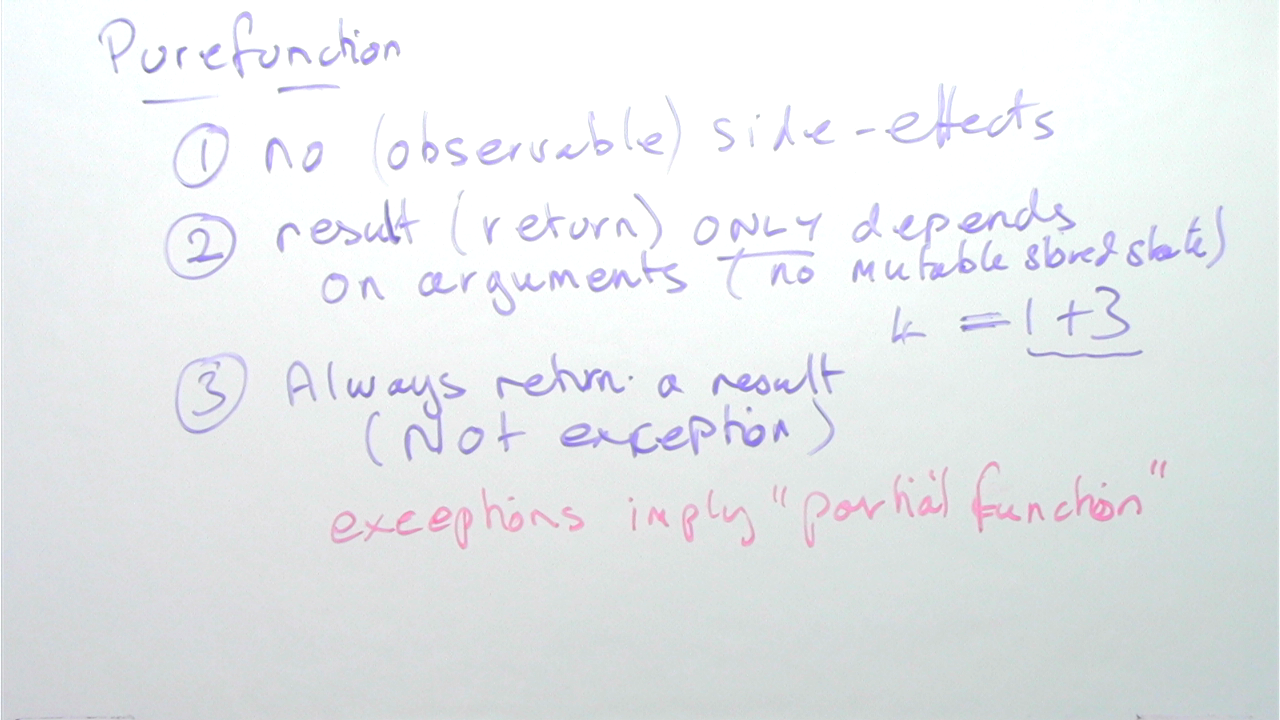 Pure function
① no (observable) side-effects
② result (return) ONLY depends
on arguments (no mutable stored state)
4 = 1 + 3
③ Always return a result
(Not exception)
exceptions imply "partial function"